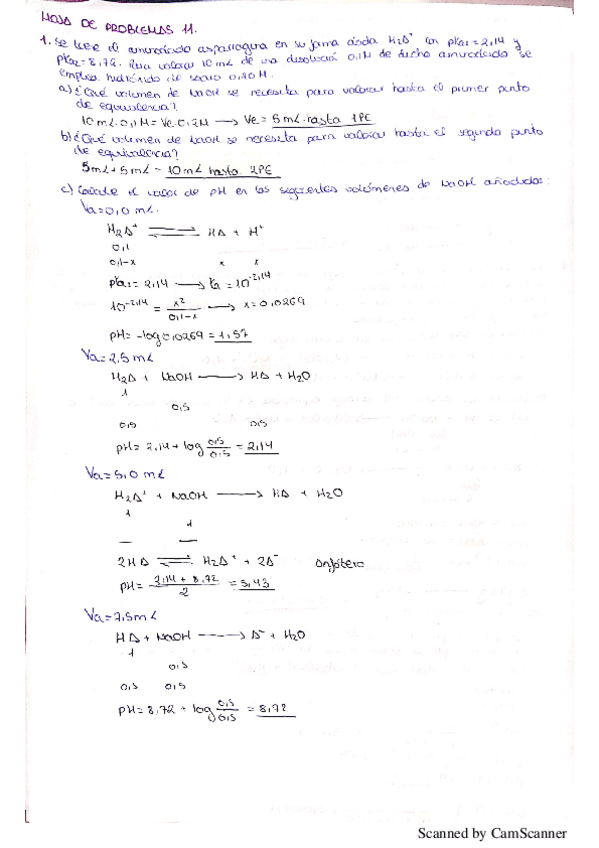 HOJA DE PROBLEMAS 11.
1. Se tiene el aminoácido asparragina en su forma ácida H₂A⁺ con pKa₁=2,14 y
pKa₂=8,72. Para valorar 10mL de una disolución 0,1M de dicho aminoácido se
emplea hidróxido de sodio 0,20M.
a) ¿Qué volumen de NaOH se necesita para valorar hasta el primer punto
de equivalencia?
10mL·0,1M=Ve·0,2M ⟶ Ve=5mL·hasta 1PE
b) ¿Qué volumen de NaOH se necesita para valorar hasta el segundo punto
de equivalencia?
5mL+5mL=10mL hasta 2PE
c) Calcule el valor de pH en los siguientes volúmenes de NaOH añadidos:
Va=0,0 mL.
H₂A⁺ ⇌ HA + H⁺
0,1
0,1-x x x
pKa₁=2,14 ⟶ Ka=10^-2,14
10^-2,14 = x²/0,1-x ⟶ x=0,0269
pH=-log 0,0269=1,57
Va=2,5mL
H₂A + NaOH ⟶ HA + H₂O
1
0,5
0,5 0,5
pH=2,14+log 0,5/0,5=2,14
Va=5,0 mL
H₂A⁺ + NaOH ⟶ HA + H₂O
1
1
— —
2HA ⇌ H₂A⁺ + 2A⁻ Anfótero
pH= 2,14+8,72/2 =5,43
Va=7,5mL
HA + NaOH ⟶ A⁻ + H₂O
1
0,5
0,5 0,5
pH=8,72+log 0,5/0,5=8,72
Scanned by CamScanner